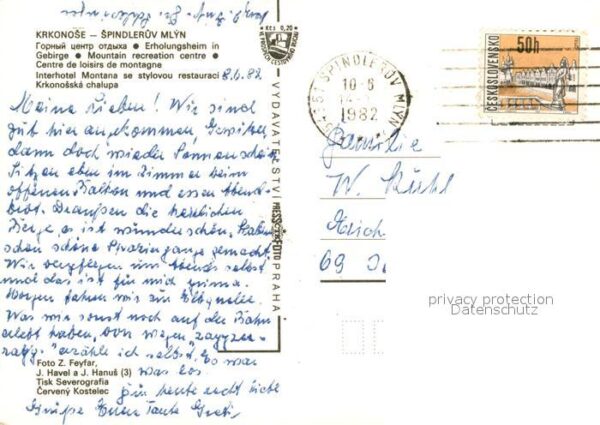 KRKONOŠE — ŠPINDLERŮV MLÝN
Горный центр отдыха ● Erholungsheim in
Gebirge ● Mountain recreation centre ●
Centre de loisirs de montagne
Interhotel Montana se stylovou restaurací
Krkonošská chalupa
8.6.82
Meine Lieben! Wir sind
gut hier angekommen, Gewitter,
dann doch wieder Sonnenschein
Sitzen eben im Zimmer beim
offenen Balkon und essen Abend-
brot. Draußen die herrlichen
Berge, es ist wunderschön, haben
schon schöne Spaziergänge gemacht
Wir verpflegen uns abends selbst
und das ist für mich prima.
Morgen fahren wir zur Elbquelle.
Was wir sonst noch auf der Bahn
erlebt haben, von wegen
erzähle ich selbst, es war
was los
für heute recht liebe
Grüße Eure Tante
Foto Z. Feyfar,
J. Havel a J. Hanuš (3)
Tisk Severografia
Červený Kostelec
Kčs 0,20
VYDAVATELSTVÍ PRESSFOTO PRAHA
543 51 ŠPINDLERŮV MLÝN
10-6
1982
50h
ČESKOSLOVENSKO
Familie
W. Kühl
69
privacy protection
Datenschutz